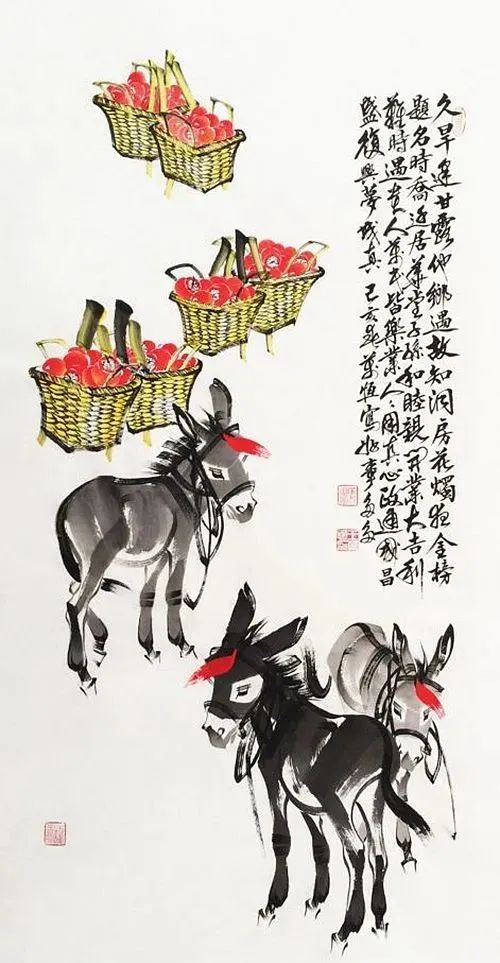 久旱逢甘露他鄉遇故知洞房花燭夜金榜
題名時喬迁居華堂子孫和睦親開業大吉利
難時遇貴人萬民皆樂業人人用真心政通國昌
盛復興夢成真 己亥 萬恆寫好事多多